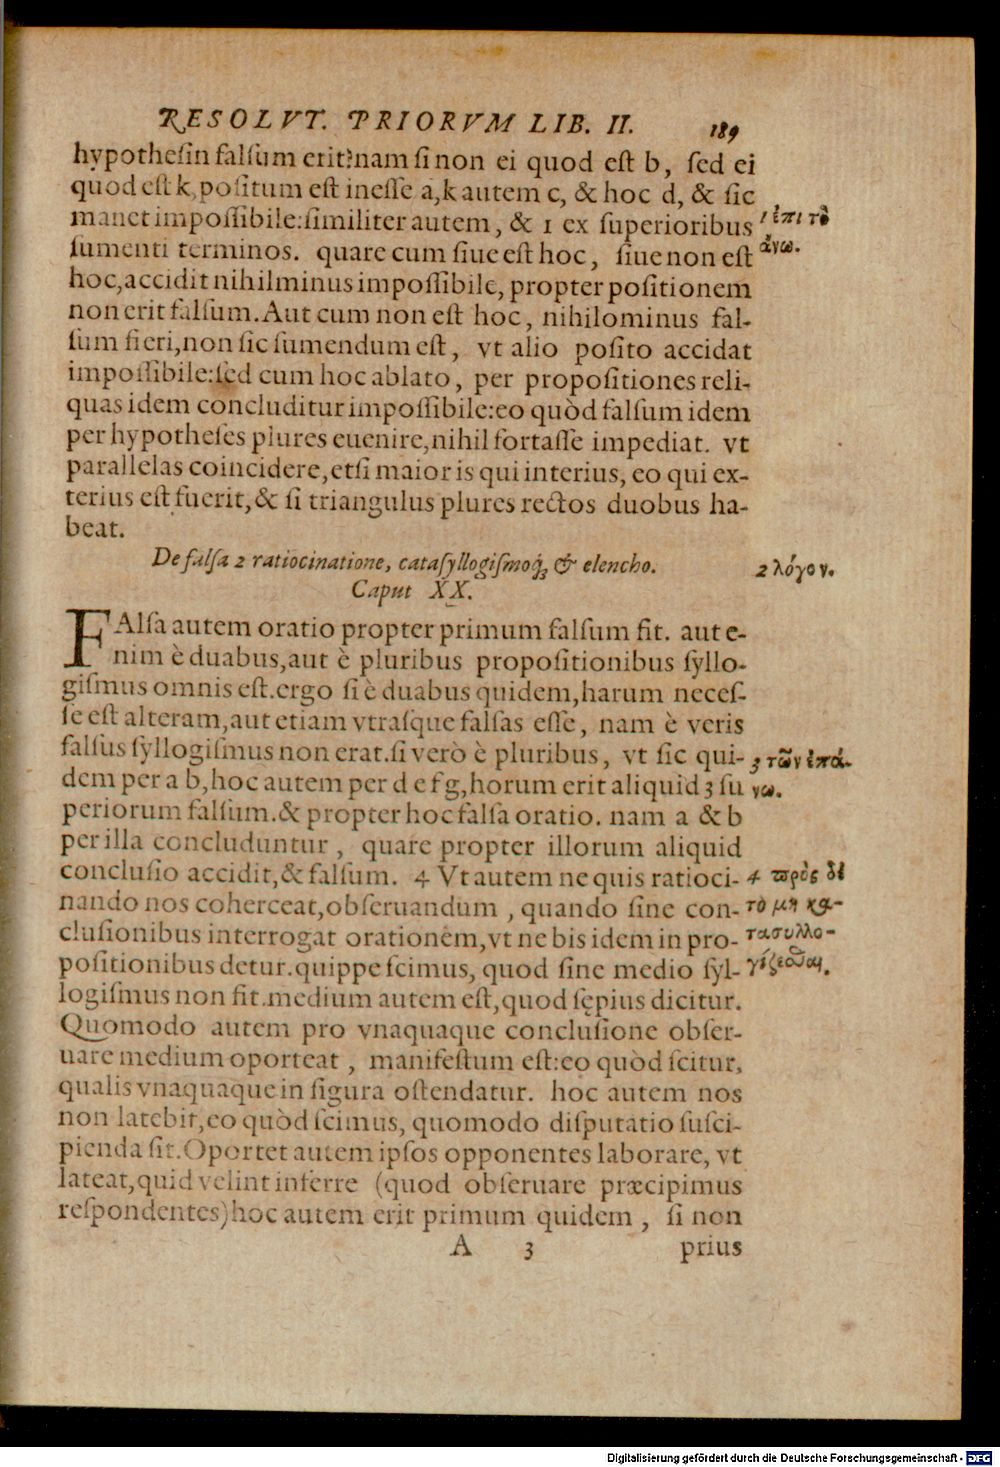 RESOLVT. PRIORVM LIB. II. 189
hypothesin falsum erit: nam si non ei quod est b, sed ei
quod est k, positum est inesse a, k autem c, & hoc d, & sic
manet impossibile: similiter autem, & 1 ex superioribus
1 ἐπὶ τὸ
sumenti terminos. quare cum siue est hoc, siue non est
ἄνω.
hoc, accidit nihilminus impossibile, propter positionem
non erit falsum. Aut cum non est hoc, nihilominus fal-
sum fieri, non sic sumendum est, vt alio posito accidat
impossibile: sed cum hoc ablato, per propositiones reli-
quas idem concluditur impossibile: eo quòd falsum idem
per hypotheses plures euenire, nihil fortasse impediat. vt
parallelas coincidere, etsi maior is qui interius, eo qui ex-
terius est fuerit, & si triangulus plures rectos duobus ha-
beat.
De falsa 2 ratiocinatione, catasyllogismoq; & elencho.
2 λόγον.
Caput XX.
FAlsa autem oratio propter primum falsum fit. aut e-
nim è duabus, aut è pluribus propositionibus syllo-
gismus omnis est. ergo si è duabus quidem, harum neces-
se est alteram, aut etiam vtrasque falsas esse, nam è veris
falsus syllogismus non erat. si verò è pluribus, vt sic qui-
3 τῶν ἐπά-
dem per a b, hoc autem per d e f g, horum erit aliquid 3 su
νω.
periorum falsum. & propter hoc falsa oratio. nam a & b
per illa concluduntur, quare propter illorum aliquid
conclusio accidit, & falsum. 4 Vt autem ne quis ratioci-
4 πρὸς δὲ
nando nos coherceat, obseruandum, quando sine con-
τὸ μὴ κα-
clusionibus interrogat orationem, vt ne bis idem in pro-
τασυλλο-
positionibus detur. quippe scimus, quod sine medio syl-
γίζεσθαι.
logismus non fit. medium autem est, quod sępius dicitur.
Quomodo autem pro vnaquaque conclusione obser-
uare medium oporteat, manifestum est: eo quòd scitur,
qualis vnaquaque in figura ostendatur. hoc autem nos
non latebit, eo quòd scimus, quomodo disputatio susci-
pienda sit. Oportet autem ipsos opponentes laborare, vt
lateat, quid velint inferre (quod obseruare præcipimus
respondentes) hoc autem erit primum quidem, si non
A 3 prius
Digitalisierung gefördert durch die Deutsche Forschungsgemeinschaft - DFG